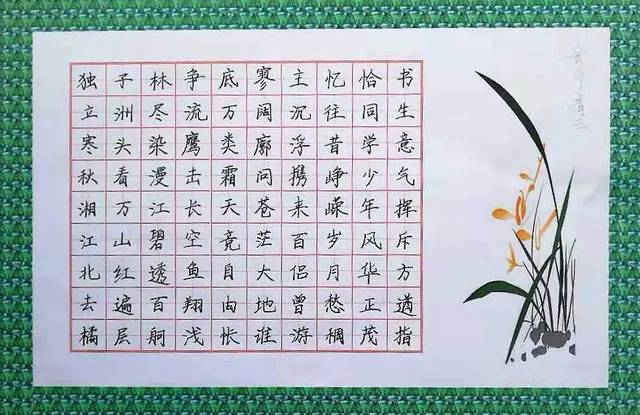 独立寒秋湘江北去橘
子洲头看万山红遍层
林尽染漫江碧透百舸
争流鹰击长空鱼翔浅
底万类霜天竟自由怅
寥阔廓问苍茫大地谁
主沉浮携来百侣曾游
忆往昔峥嵘岁月愁稠
恰同学少年风华正茂
书生意气挥斥方遒指